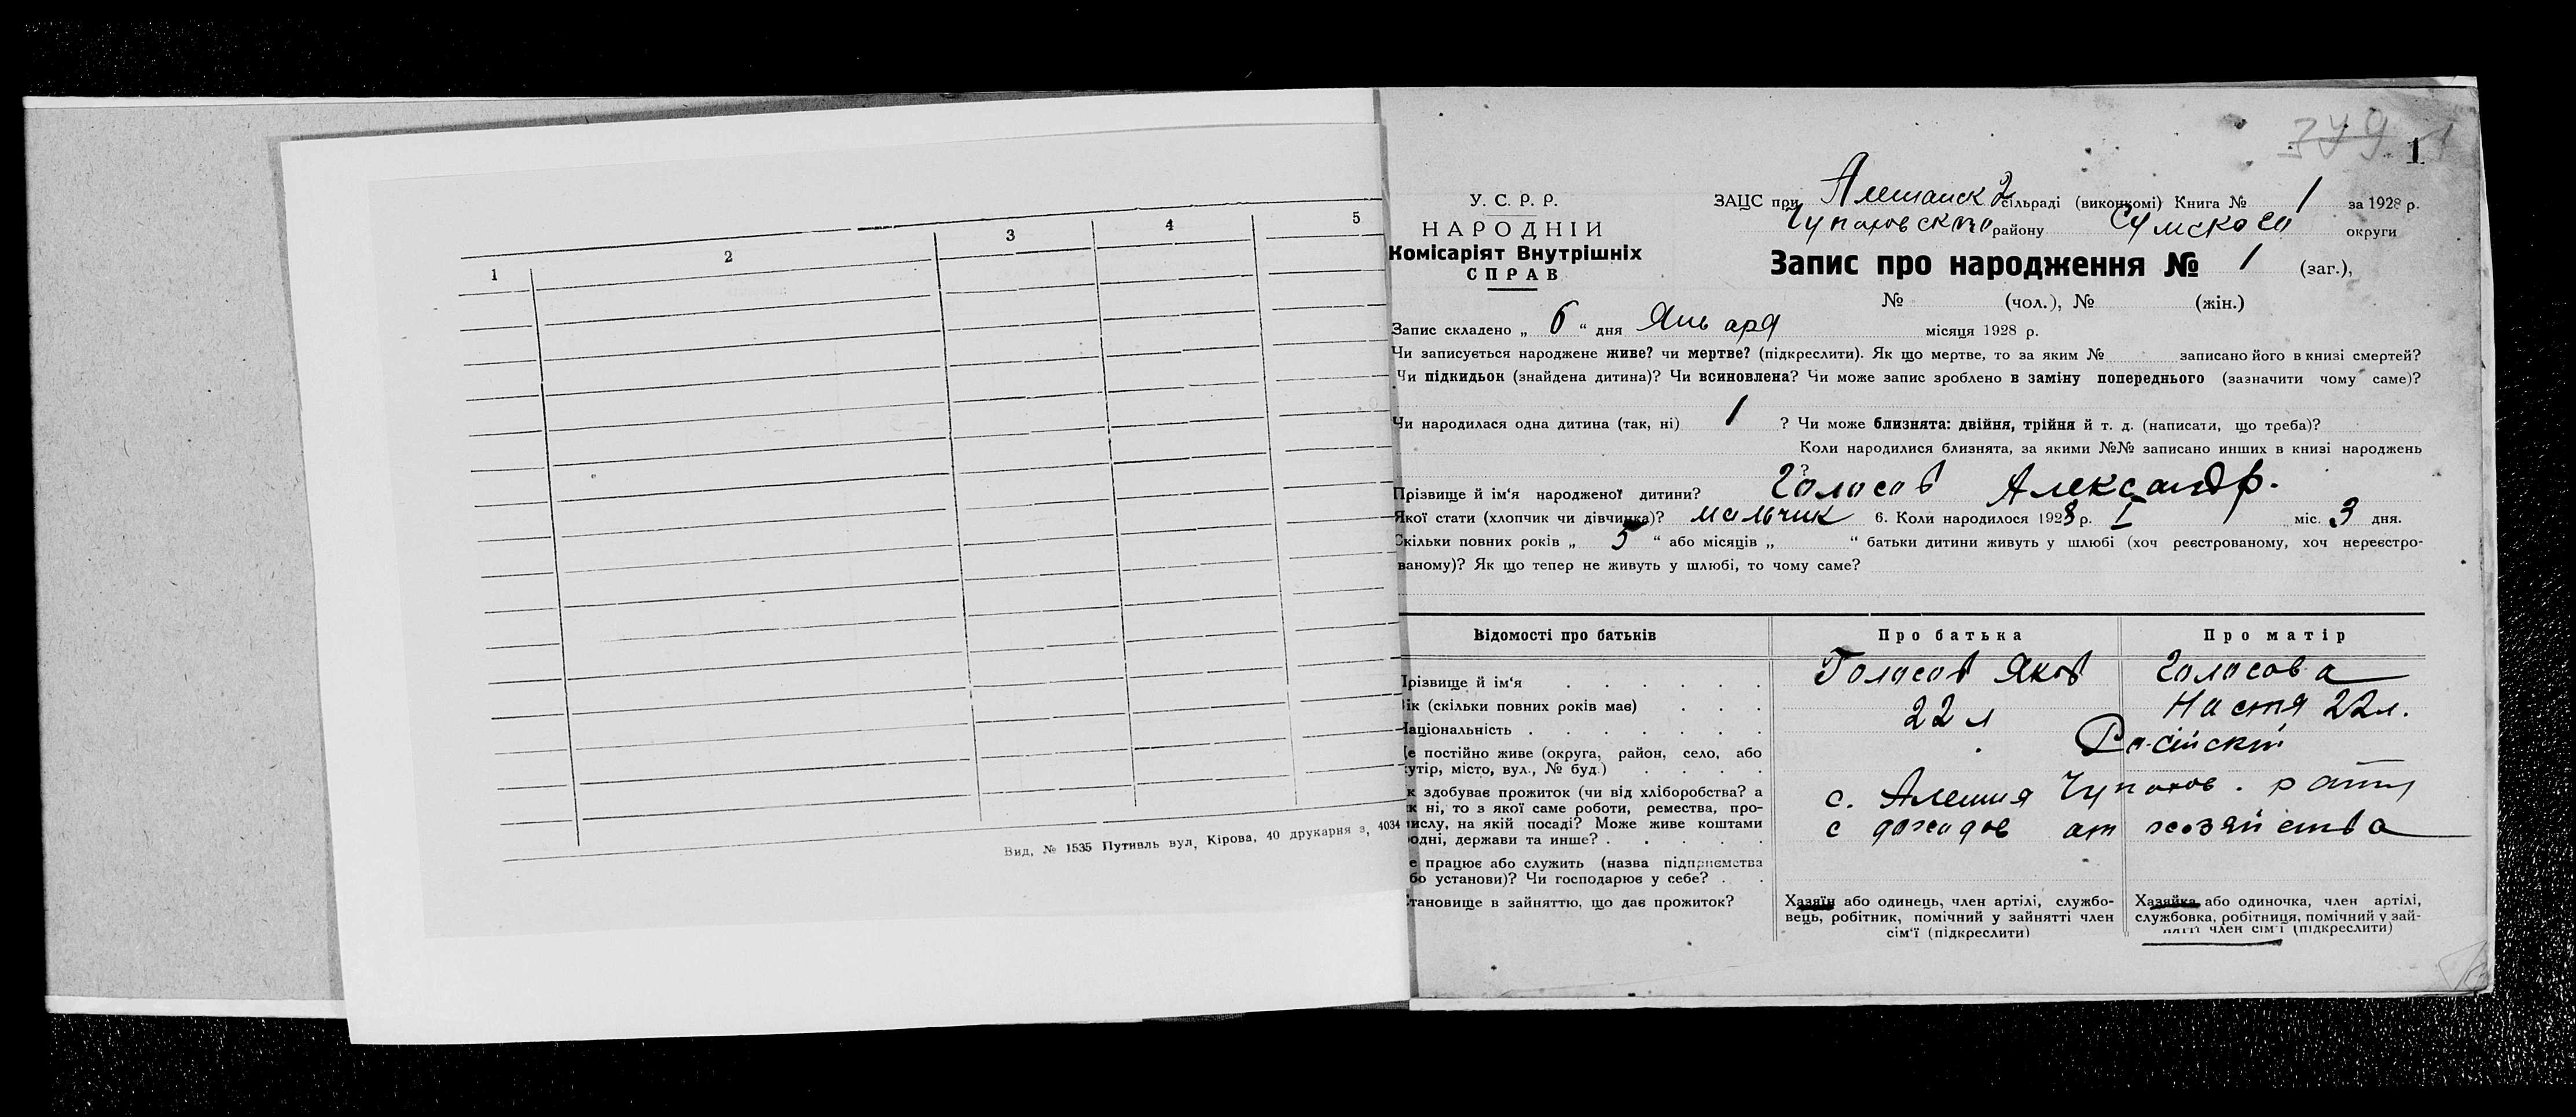 1 2 3 4 5
Вид, № 1535 Путивль вул, Кірова, 40 друкарня з, 4034
379
1
У. С. Р. Р.
НАРОДНІЙ
Комісаріят Внутрішніх
СПРАВ
ЗАЦС при Алешанск сільраді (виконкомі) Книга № 1 за 1928 р.
Чупаховского району Сумского округи
Запис про народження № 1 (заг.),
№ (чол.), № (жін.)
Запис складено „ 6 “ дня Января місяця 1928 р.
Чи записується народжене живе? чи мертве? (підкреслити). Як що мертве, то за яким № записано його в книзі смертей?
Чи підкидьок (знайдена дитина)? Чи всиновлена? Чи може запис зроблено в заміну попереднього (зазначити чому саме)?
Чи народилася одна дитина (так, ні) 1 ? Чи може близнята: двійня, трійня й т. д. (написати, що треба)?
Коли народилися близнята, за якими №№ записано инших в книзі народжень
?
Прізвище й ім‘я народженої дитини? Голосов Александр.
Якої стати (хлопчик чи дівчинка)? мальчик 6. Коли народилося 1928 р. I міс. 3 дня.
Скільки повних років „ 5 “ або місяців „ “ батьки дитини живуть у шлюбі (хоч реєстрованому, хоч нереєстро-
ваному)? Як що тепер не живуть у шлюбі, то чому саме?
Відомості про батьків Про батька Про матір
Прізвище й ім‘я Голосов Яков Голосова
Вік (скільки повних років має) 22 л Настя 22 л.
Національність Расійскій
Де постійно живе (округа, район, село, або
хутір, місто, вул., № буд.)
с. Алешня Чупахов. рану
як здобуває прожиток (чи від хліборобства? а
як ні, то з якої саме роботи, ремества, про-
мислу, на якій посаді? Може живе коштами
родні, держави та инше?
с доходов от хозяйства
Де працює або служить (назва підприємства
або установи)? Чи господарює у себе?
Становище в зайняттю, що дає прожиток?
Хазяїн або одинець, член артілі, службо-
вець, робітник, помічний у зайнятті член
сім‘ї (підкреслити)
Хазяйка або одиночка, член артілі,
службовка, робітниця, помічний у зай-
нятті член сім‘ї (підкреслити)